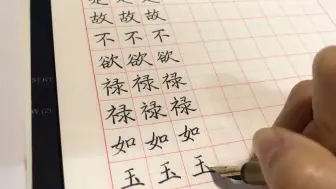 故故故
不不不
欲欲欲
禄禄禄
禄禄禄
如如如
玉玉玉